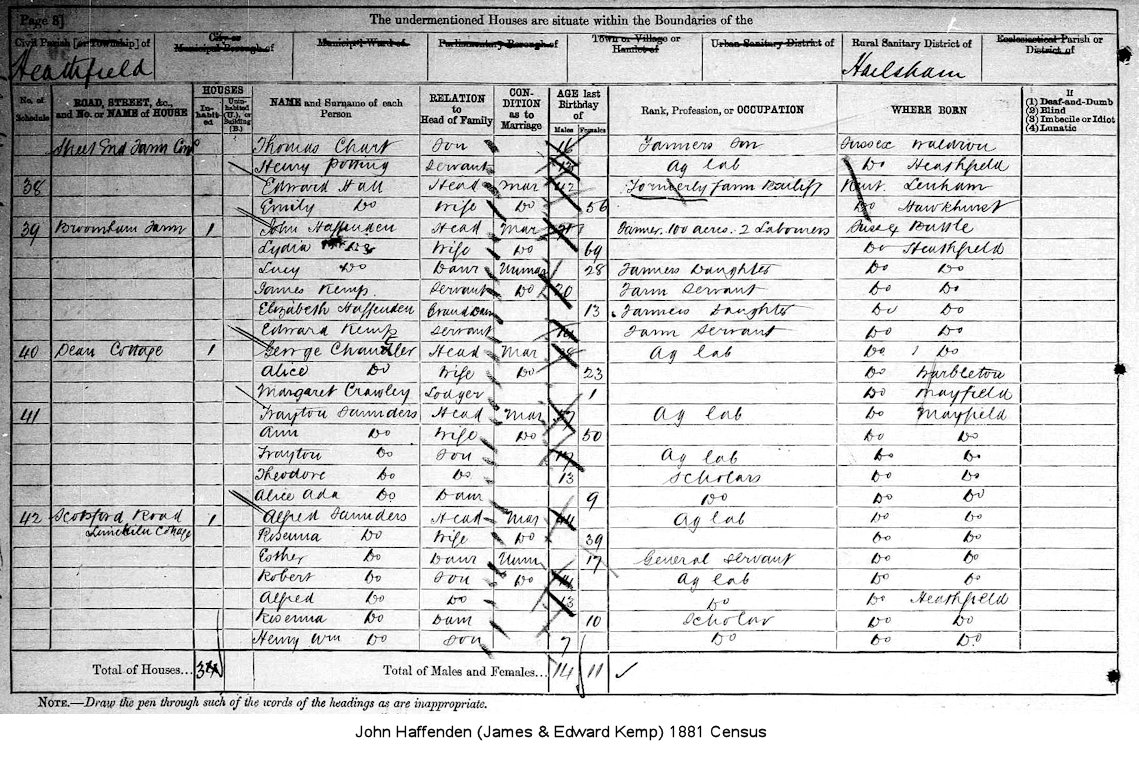 Page 8]
The undermentioned Houses are situate within the Boundaries of the
Civil Parish [or Township] of City or Municipal Borough of Municipal Ward of Parliamentary Borough of Town or Village or Hamlet of Urban Sanitary District of Rural Sanitary District of Ecclesiastical Parish or District of
Heathfield Hailsham
No. of Schedule ROAD, STREET, &c., and No. or NAME of HOUSE HOUSES Inhabited Uninhabited (U.), or Building (B.) NAME and Surname of each Person RELATION to Head of Family CONDITION as to Marriage AGE last Birthday of Males Females Rank, Profession, or OCCUPATION WHERE BORN If (1) Deaf-and-Dumb (2) Blind (3) Imbecile or Idiot (4) Lunatic
Street End Farm Thomas Chart Son 16 Farmers Son Sussex Waldron
Henry Servant Ag lab Do Heathfield
38 Edward Hall Head Mar 42 Formerly Farm Bailiff Kent Lenham
Emily Do Wife Do 56 Do Hawkhurst
39 Broomham Farm 1 John Haffenden Head Mar Farmer 100 acres. 2 Labourers Sussex Battle
Lydia Do Wife Do 69 Do Heathfield
Lucy Do Daur Unmar 28 Farmers Daughter Do Do
James Kemp Servant Do 20 Farm Servant Do Do
Elizabeth Haffenden Grand Daur 13 Farmers Daughter Do Do
Edward Kemp Servant Farm Servant Do Do
40 Dean Cottage 1 George Chandler Head Mar 28 Ag lab Do Do
Alice Do Wife Do 23 Do Warbleton
Margaret Crawley Lodger 1 Do Mayfield
41 Trayton Saunders Head Mar Ag lab Do Mayfield
Ann Do Wife Do 50 Do Do
Trayton Do Son Ag lab Do Do
Theodore Do Do 13 Scholars Do Do
Alice Ada Do Daur 9 Do Do Do
42 Scotsford Road 1 Alfred Saunders Head Mar 44 Ag lab Do Do
Limekiln Cottage Rosenna Do Wife Do 39 Do Do
Esther Do Daur Unm 17 General Servant Do Do
Robert Do Son Do 14 Ag lab Do Do
Alfred Do Do 13 Do Do Heathfield
Rosenna Do Daur 10 Scholar Do Do
Henry Wm Do Son 7 Do Do Do
Total of Houses... 34 Total of Males and Females... 14 11 ✓
NOTE.—Draw the pen through such of the words of the headings as are inappropriate.
John Haffenden (James & Edward Kemp) 1881 Census